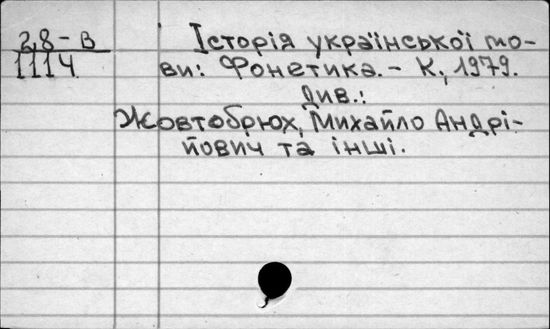 2,8-В
1114
Історія української мо-
ви: Фонетика. - К, 1979.
Див.:
Жовтобрюх, Михайло Андрі-
йович та інші.